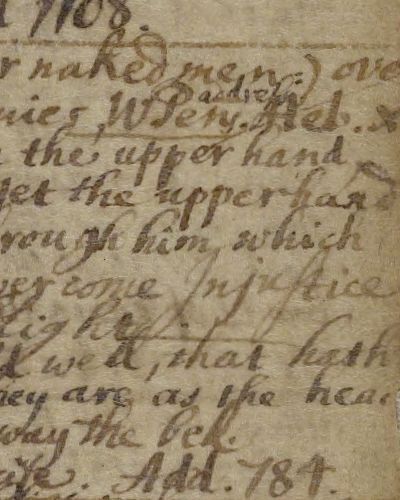 1708.
r naked men.) ove
address
nies, W. Pen's. Hel. &
the upper hand
get the upper hand
rough him, which
vercome Injustice
light
d well, that hath
hey are as the hea
way the bek.
Add. 784.